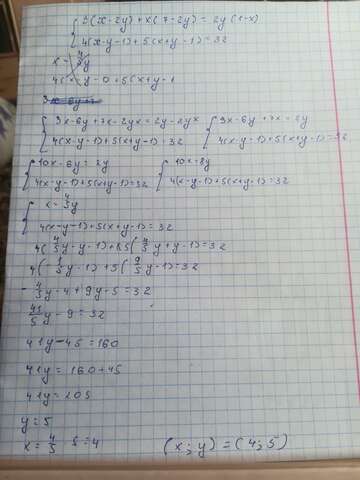 3(x-2y)+x(7-2y)=2y(1-x)
4(x-y-1)+5(x+y-1)=32
x=4/5y
4(x-y-0+5(x+y-1
3x-6y+7
3x-6y+7x-2yx=2y-2yx 3x-6y+7x=2y
4(x-y-1)+5(x+y-1)=32 4(x-y-1)+5(x+y-1)=32
10x-6y=2y 10x=8y
4(x-y-1)+5(x+y-1)=32 4(x-y-1)+5(x+y-1)=32
x=4/5y
4(x-y-1)+5(x+y-1)=32
4(4/5y-y-1)+5(4/5y+y-1)=32
4(-1/5y-1)+5(9/5y-1)=32
-4/5y-4+9y-5=32
41/5y-9=32
41y-45=160
41y=160+45
41y=205
y=5
x=4/5·5=4 (x;y)=(4;5)